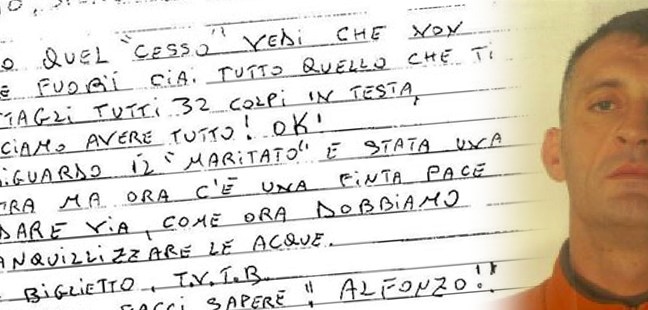 O QUEL "CESSO" VEDI CHE NON
E FUORI CIAI TUTTO QUELLO CHE TI
TTAGLI TUTTI 32 COLPI IN TESTA,
CIAMO AVERE TUTTO! OK!
RIGUARDO IL "MARITATO" E STATA UNA
TRA MA ORA C'È UNA FINTA PACE
DARE VIA, COME ORA DOBBIAMO
ANQUILLIZZARE LE ACQUE.
BIGLIETTO. T.V.T.B.
FACCI SAPERE! ALFONZO!!